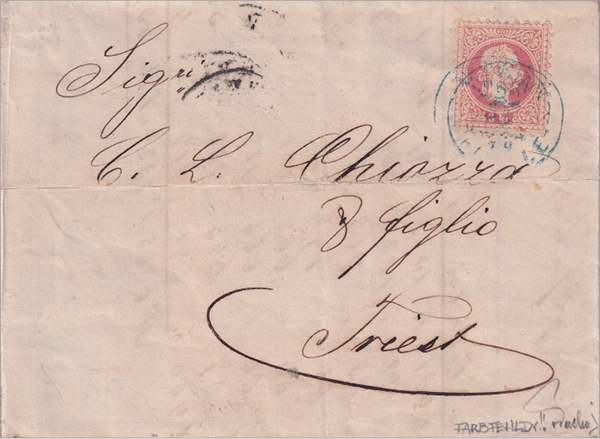 Sigri
C. L. Chiozza
& figlio
Triest
FARBFEHLDR.